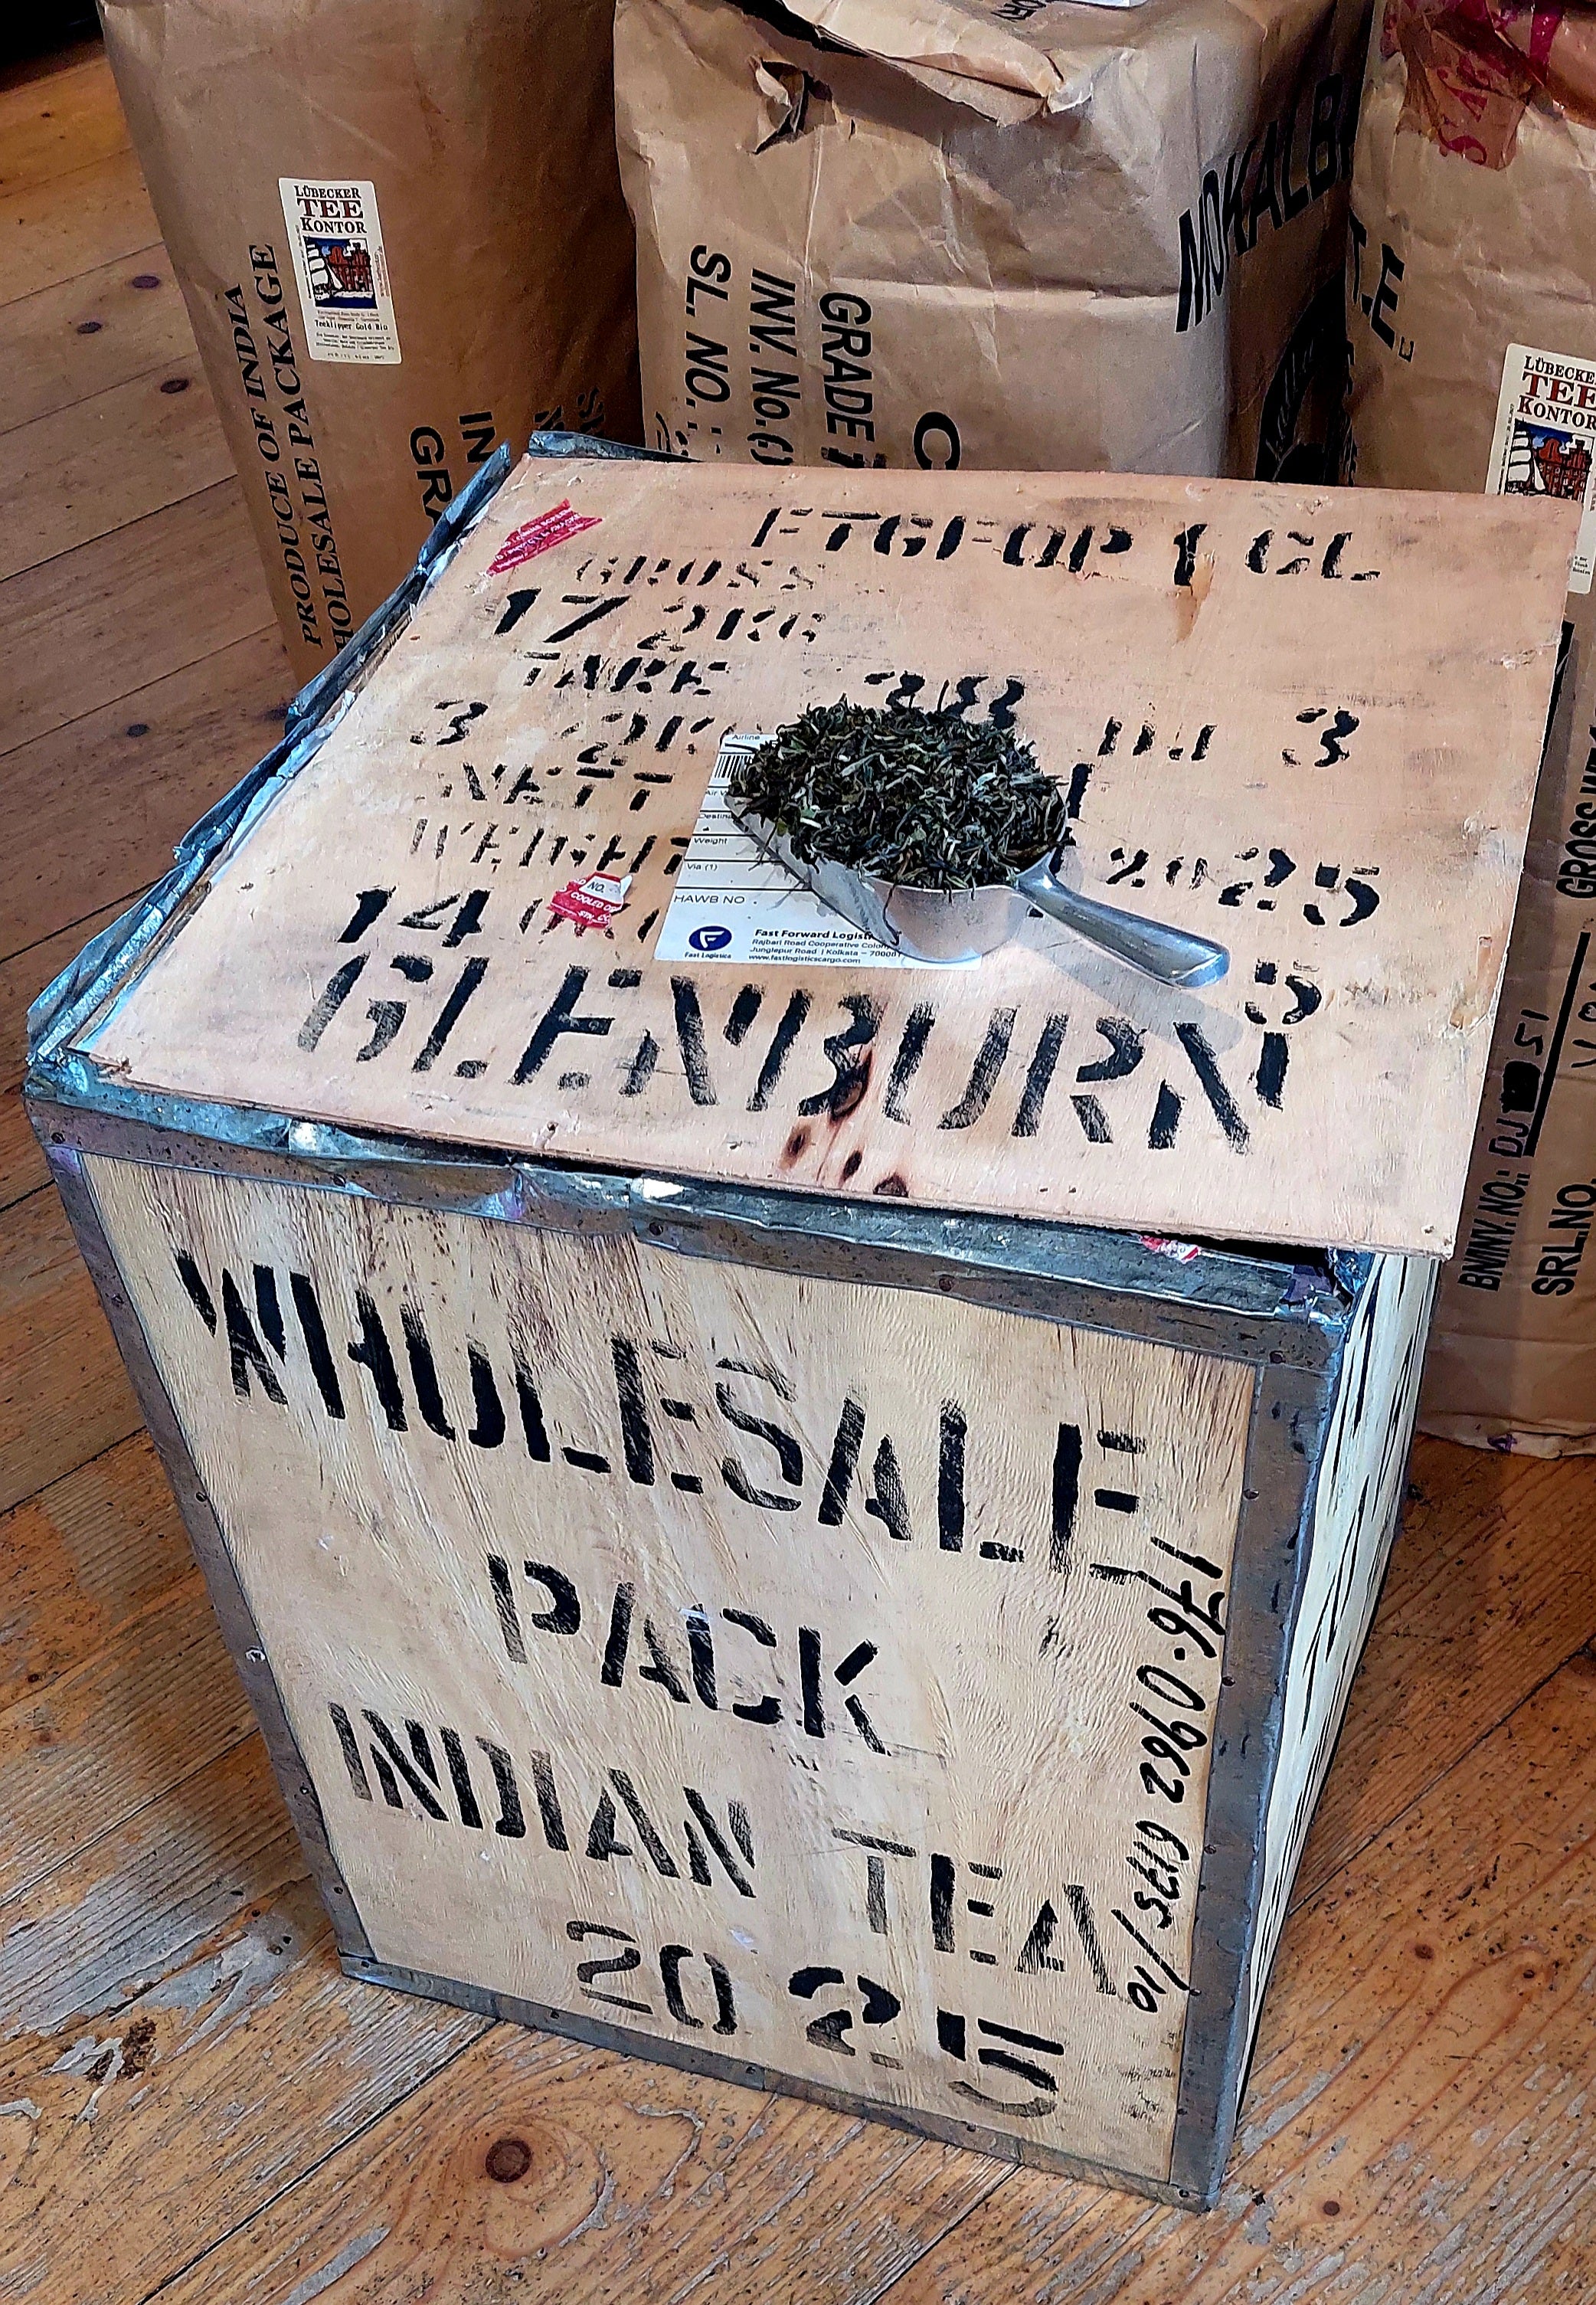 LÜBECKER
TEE
KONTOR
Teeklipper Gold Bio
PRODUCE OF INDIA
WHOLESALE PACKAGE
IN
GRA
SL. NO.:
INV. No.(:)
GRADE
MOKALB
LÜBECKE
TEE
KONTOR
FTGFOP 1 CL
GROSS
17 2KG
TARE
3 2K
NETT
WEIGHT
14 0
DJ 3
2025
5
GLENBURN
Airline
Air
Destina
Weight
Via (1)
HAWB NO
Fast Logistics
Fast Forward Logisti
Rajbari Road Cooperative Colon
Junglepur Road | Kolkata – 700081
www.fastlogisticscargo.com
NO.
COOLED
GROSS
BNWNY. NO.: DJ 51
SRL.NO
WHOLESALE
PACK
INDIAN TEA
2025
176-0962 6175/10